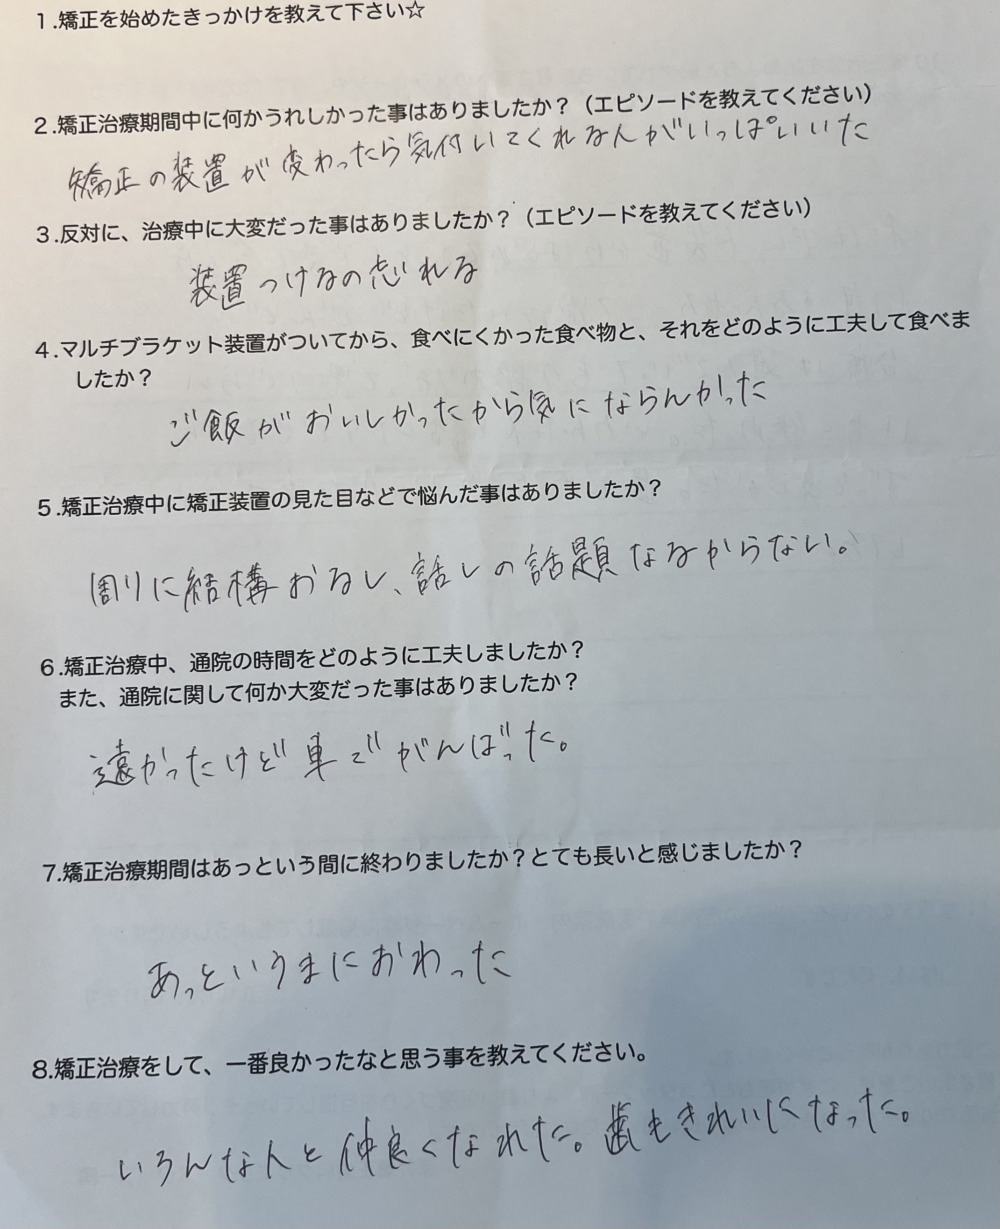 1.矯正を始めたきっかけを教えて下さい☆
2.矯正治療期間中に何かうれしかった事はありましたか？（エピソードを教えてください）
矯正の装置が変わったら気付いてくれる人がいっぱいいた
3.反対に、治療中に大変だった事はありましたか？（エピソードを教えてください）
装置つけるの忘れる
4.マルチブラケット装置がついてから、食べにくかった食べ物と、それをどのように工夫して食べま
したか？
ご飯がおいしかったから気にならんかった
5.矯正治療中に矯正装置の見た目などで悩んだ事はありましたか？
周りに結構おるし、話しの話題なるからない。
6.矯正治療中、通院の時間をどのように工夫しましたか？
また、通院に関して何か大変だった事はありましたか？
遠かったけど車でがんばった。
7.矯正治療期間はあっという間に終わりましたか？とても長いと感じましたか？
あっというまにおわった
8.矯正治療をして、一番良かったなと思う事を教えてください。
いろんな人と仲良くなれた。歯もきれいになった。